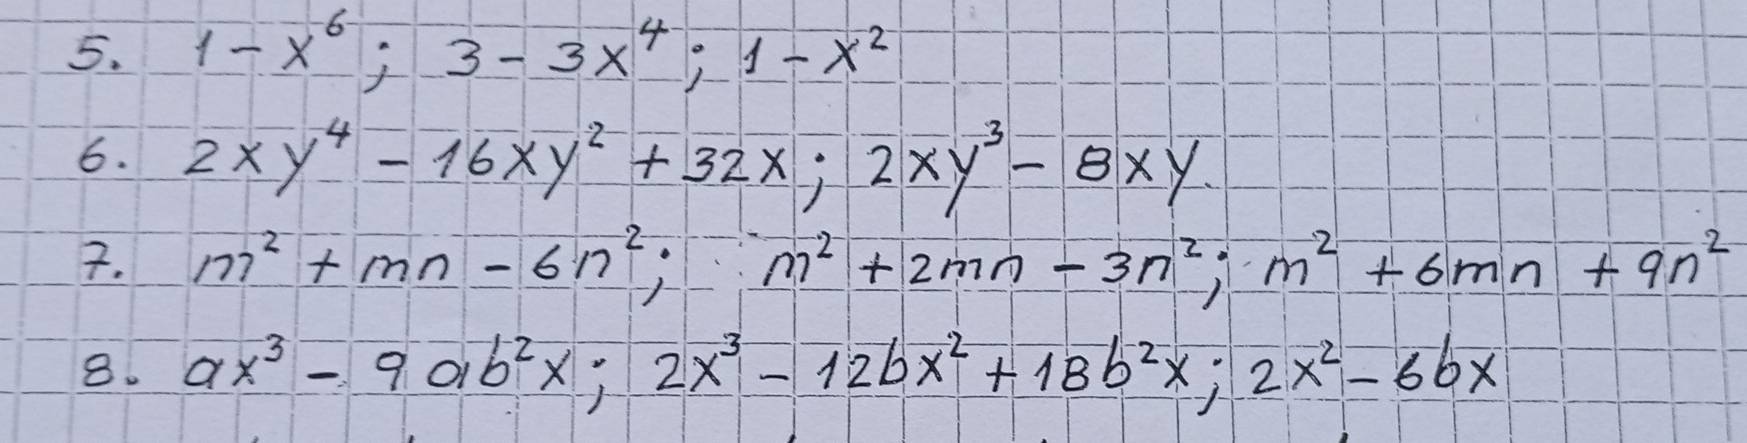 5. 1 - x⁶; 3 - 3x⁴; 1 - x²
6. 2xy⁴ - 16xy² + 32x; 2xy³ - 8xy.
7. m² + mn - 6n²; m² + 2mn - 3n²; m² + 6mn + 9n²
8. ax³ - 9ab²x; 2x³ - 12bx² + 18b²x; 2x² - 6bx